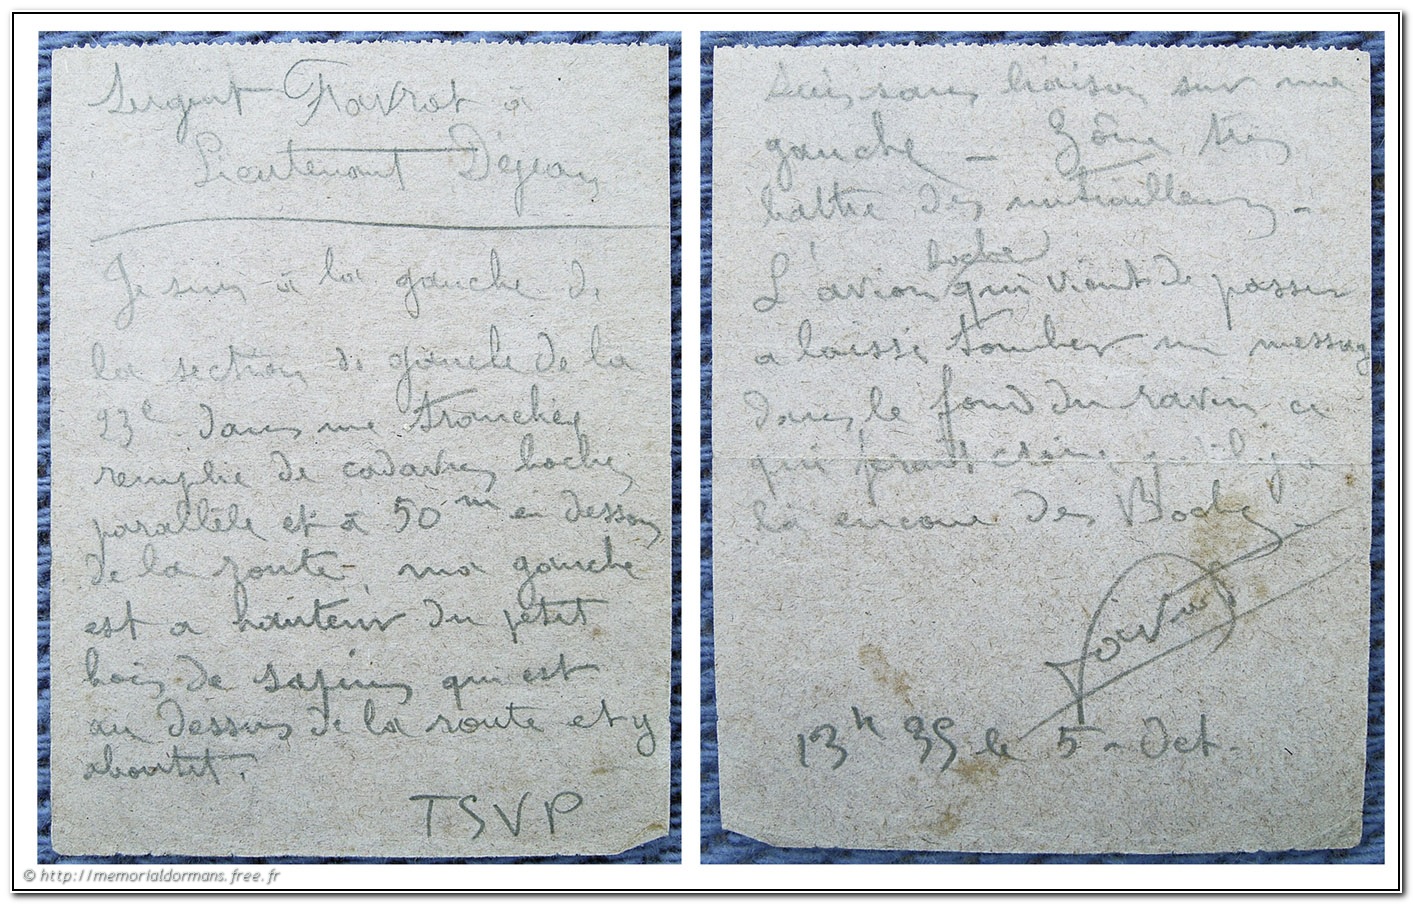 Sergent Favrot à
Lieutenant Dejean
Je suis à la gauche de
la section de gauche de la
23e dans une tranchée
remplie de cadavres boches
parallèle et à 50m en dessous
de la route, ma gauche
est a hauteur du petit
bois de sapins qui est
au dessus de la route et y
aboutit.
TSVP
Suis sans liaison sur ma
gauche - Zône très
battue des mitrailleuses -
L'avion boche qui vient de passer
a laissé tomber un message
dans le fond du ravin ce
qui ferait croire qu'il y a
là encore des Boches.
Favrot
13h 35 le 5 - Oct -
© http://memorialdormans.free.fr